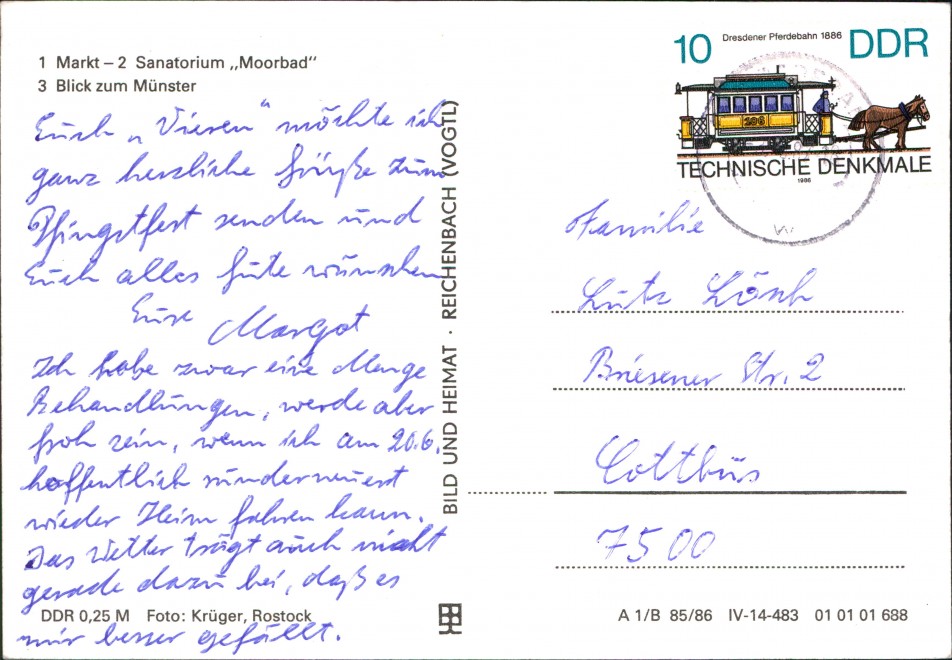 1 Markt – 2 Sanatorium „Moorbad"
3 Blick zum Münster
Euch „Vieren" möchte ich
ganz herzliche Grüße zum
Pfingstfest senden und
Euch alles Gute wünschen
Eure Margot
Ich habe zwar eine Menge
Behandlungen, werde aber
froh sein, wenn ich am 20.6.
hoffentlich runderneuert
wieder Heim fahren kann.
Das Wetter trägt auch nicht
gerade dazu bei, daß es
mir besser gefällt.
DDR 0,25 M Foto: Krüger, Rostock
BILD UND HEIMAT · REICHENBACH (VOGTL)
10 Dresdener Pferdebahn 1886 DDR
286
TECHNISCHE DENKMALE
1986
Familie
Lutz Lösch
Briesener Str. 2
Cottbus
7500
A 1/B 85/86 IV-14-483 01 01 01 688